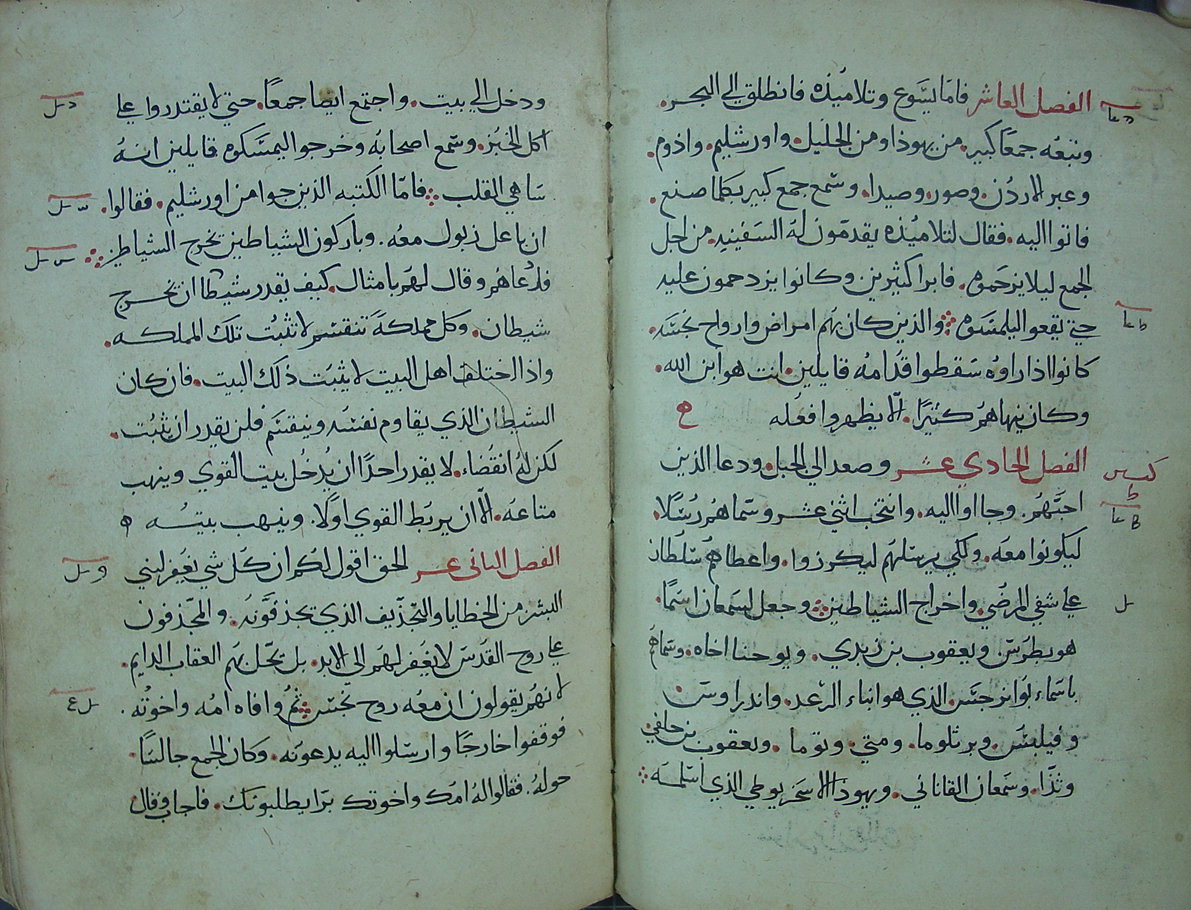 الفصل العاشر فاما يسوع وتلاميذه فانطلق الي البحر.
وتبعه جمعا كبير. من يهوذا ومن الجليل. واورشليم. واذوم.
وعبر الاردن. وصور. وصيدا. وسمع جمع كبير بكلما صنع.
فاتوا اليه. فقال لتلاميذه يقدمون له السفينه. من اجل
الجمع ليلا يزحموه. فابرا كثيرين وكانوا يزدحمون عليه
حتي يقعوا اليلمسوه. والذين كان بهم امراض وارواح نجسه.
كانوا اذا راوه سقطوا قدامه قايلين. انت هو ابن الله.
وكان ينهاهم كثيرا. الا يظهروا فعله
الفصل الحادى عشر وصعد الي الجبل. ودعا الذين
احبهم. وجا اوا اليه. وانتخب اثني عشر وسماهم رسلا.
ليكونوا معه. ولكي يرسلهم ليكرزوا. واعطاهم سلطان
علي شفي المرضي. واخراج الشياطين. وجعل لسمعان اسما.
هو بطرس. ويعقوب بن زبدي. ويوحنا اخاه. وسماهم
باسماء بوانرجس. الذي هو ابناء الرعد. واندراوس
وفيلبس. وبرثلوما. ومتي. وتوما. ويعقوب بن حلفي
وثدا. وسمعان القاناني. ويهوذا الاسخريوطي الذي اسلمه
ودخل الي بيت. واجتمع ايضا جمعا. حتي لا يقتدروا علي
اكل الخبز. وسمع اصحابه وخرجو اليمسكوه قايلين انه
ساهي القلب. فاما الكتبه الذين جوا من اورشليم. فقالوا.
ان باعل زبول معه. وباركون الشياطين تخرج الشياطين
فدعاهم وقال لهم بامثال. كيف يقدر شيطان ان يخرج
شيطان. وكل مملكة تنقسم لا تثبت تلك المملكه.
واذا اختلف اهل البيت لا يثبت ذلك البيت. فان كان
الشيطان الذي يقاوم نفسه وينقسم فلن يقدر ان يثبت.
لكن له انقضاء. لا يقدر احدا ان يدخل بيت القوي وينهب
متاعه. الا ان يربط القوي اولا. وينهب بيته
الفصل الثانى عشر الحق اقول لكم ان كل شي يغفر لبني
البشر من الخطايا والتجذيف الذي يجذفونه. والمجذفون
علي روح القدس لا يغفر لهم الي الابد. بل تحل بهم العقاب الدايم.
لانهم يقولون ان معه روح نجس. ثم وافاه امه واخوته.
فوقفوا خارجا وارسلوا اليه يدعونه. وكان الجمع جالسا.
حوله. فقالوا له امك واخوتك برا يطلبونك. فاجاب وقال